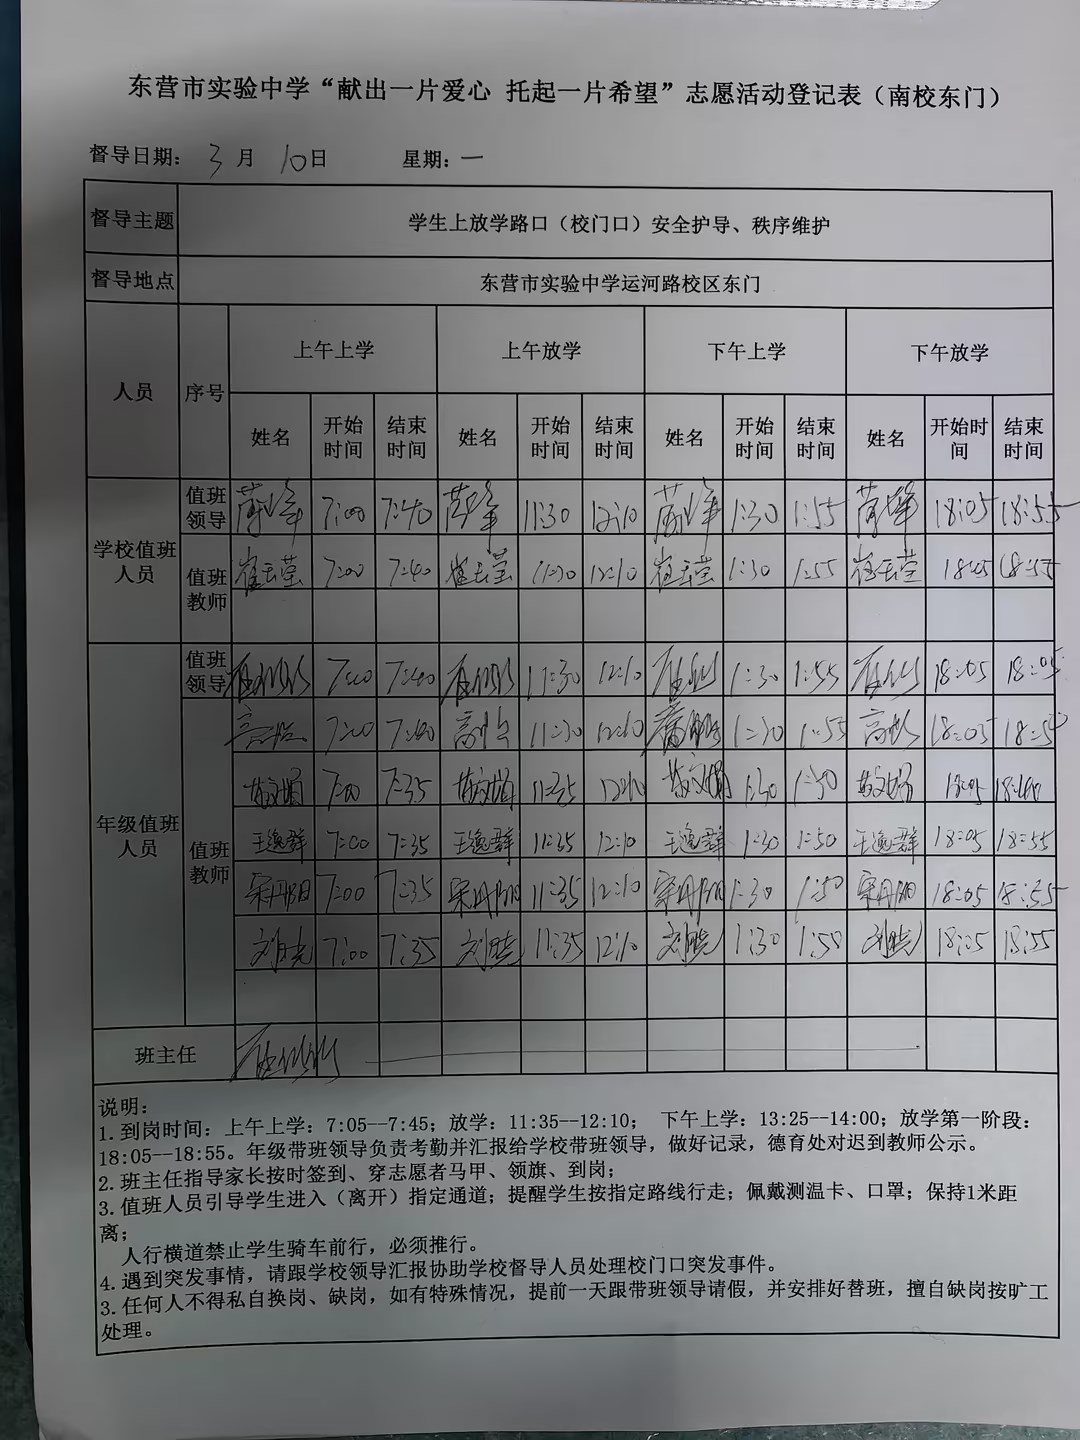 东营市实验中学“献出一片爱心 托起一片希望”志愿活动登记表（南校东门）
督导日期： 3 月 10 日 星期：一
督导主题 学生上放学路口（校门口）安全护导、秩序维护
督导地点 东营市实验中学运河路校区东门
人员 序号 上午上学 上午放学 下午上学 下午放学
姓名 开始时间 结束时间 姓名 开始时间 结束时间 姓名 开始时间 结束时间 姓名 开始时间 结束时间
学校值班人员
值班领导 7:00 7:40 11:30 12:10 1:30 1:55 18:05 18:55
值班教师 崔玉莹 7:00 7:40 崔玉莹 11:30 12:10 崔玉莹 1:30 1:55 崔玉莹 18:05 18:55
年级值班人员
值班领导 7:00 7:40 11:30 12:10 1:30 1:55 18:05 18:05
值班教师
7:00 7:40 11:30 12:10 1:30 1:55 18:05 18:50
7:00 7:35 11:35 12:10 1:30 1:50 18:05
王逸群 7:00 7:35 王逸群 11:35 12:10 王逸群 1:30 1:50 王逸群 18:05 18:55
宋丹阳 7:00 7:35 宋丹阳 11:35 12:10 宋丹阳 1:30 1:50 宋丹阳 18:05 18:55
刘晓 7:00 7:35 刘晓 11:35 12:10 刘晓 1:30 1:50 刘晓 18:05 18:55
班主任
说明：
1. 到岗时间：上午上学：7:05--7:45；放学：11:35--12:10； 下午上学：13:25--14:00；放学第一阶段：
18:05--18:55。年级带班领导负责考勤并汇报给学校带班领导，做好记录，德育处对迟到教师公示。
2. 班主任指导家长按时签到、穿志愿者马甲、领旗、到岗；
3. 值班人员引导学生进入（离开）指定通道；提醒学生按指定路线行走；佩戴测温卡、口罩；保持1米距
离；
人行横道禁止学生骑车前行，必须推行。
4. 遇到突发事情，请跟学校领导汇报协助学校督导人员处理校门口突发事件。
3. 任何人不得私自换岗、缺岗，如有特殊情况，提前一天跟带班领导请假，并安排好替班，擅自缺岗按旷工
处理。